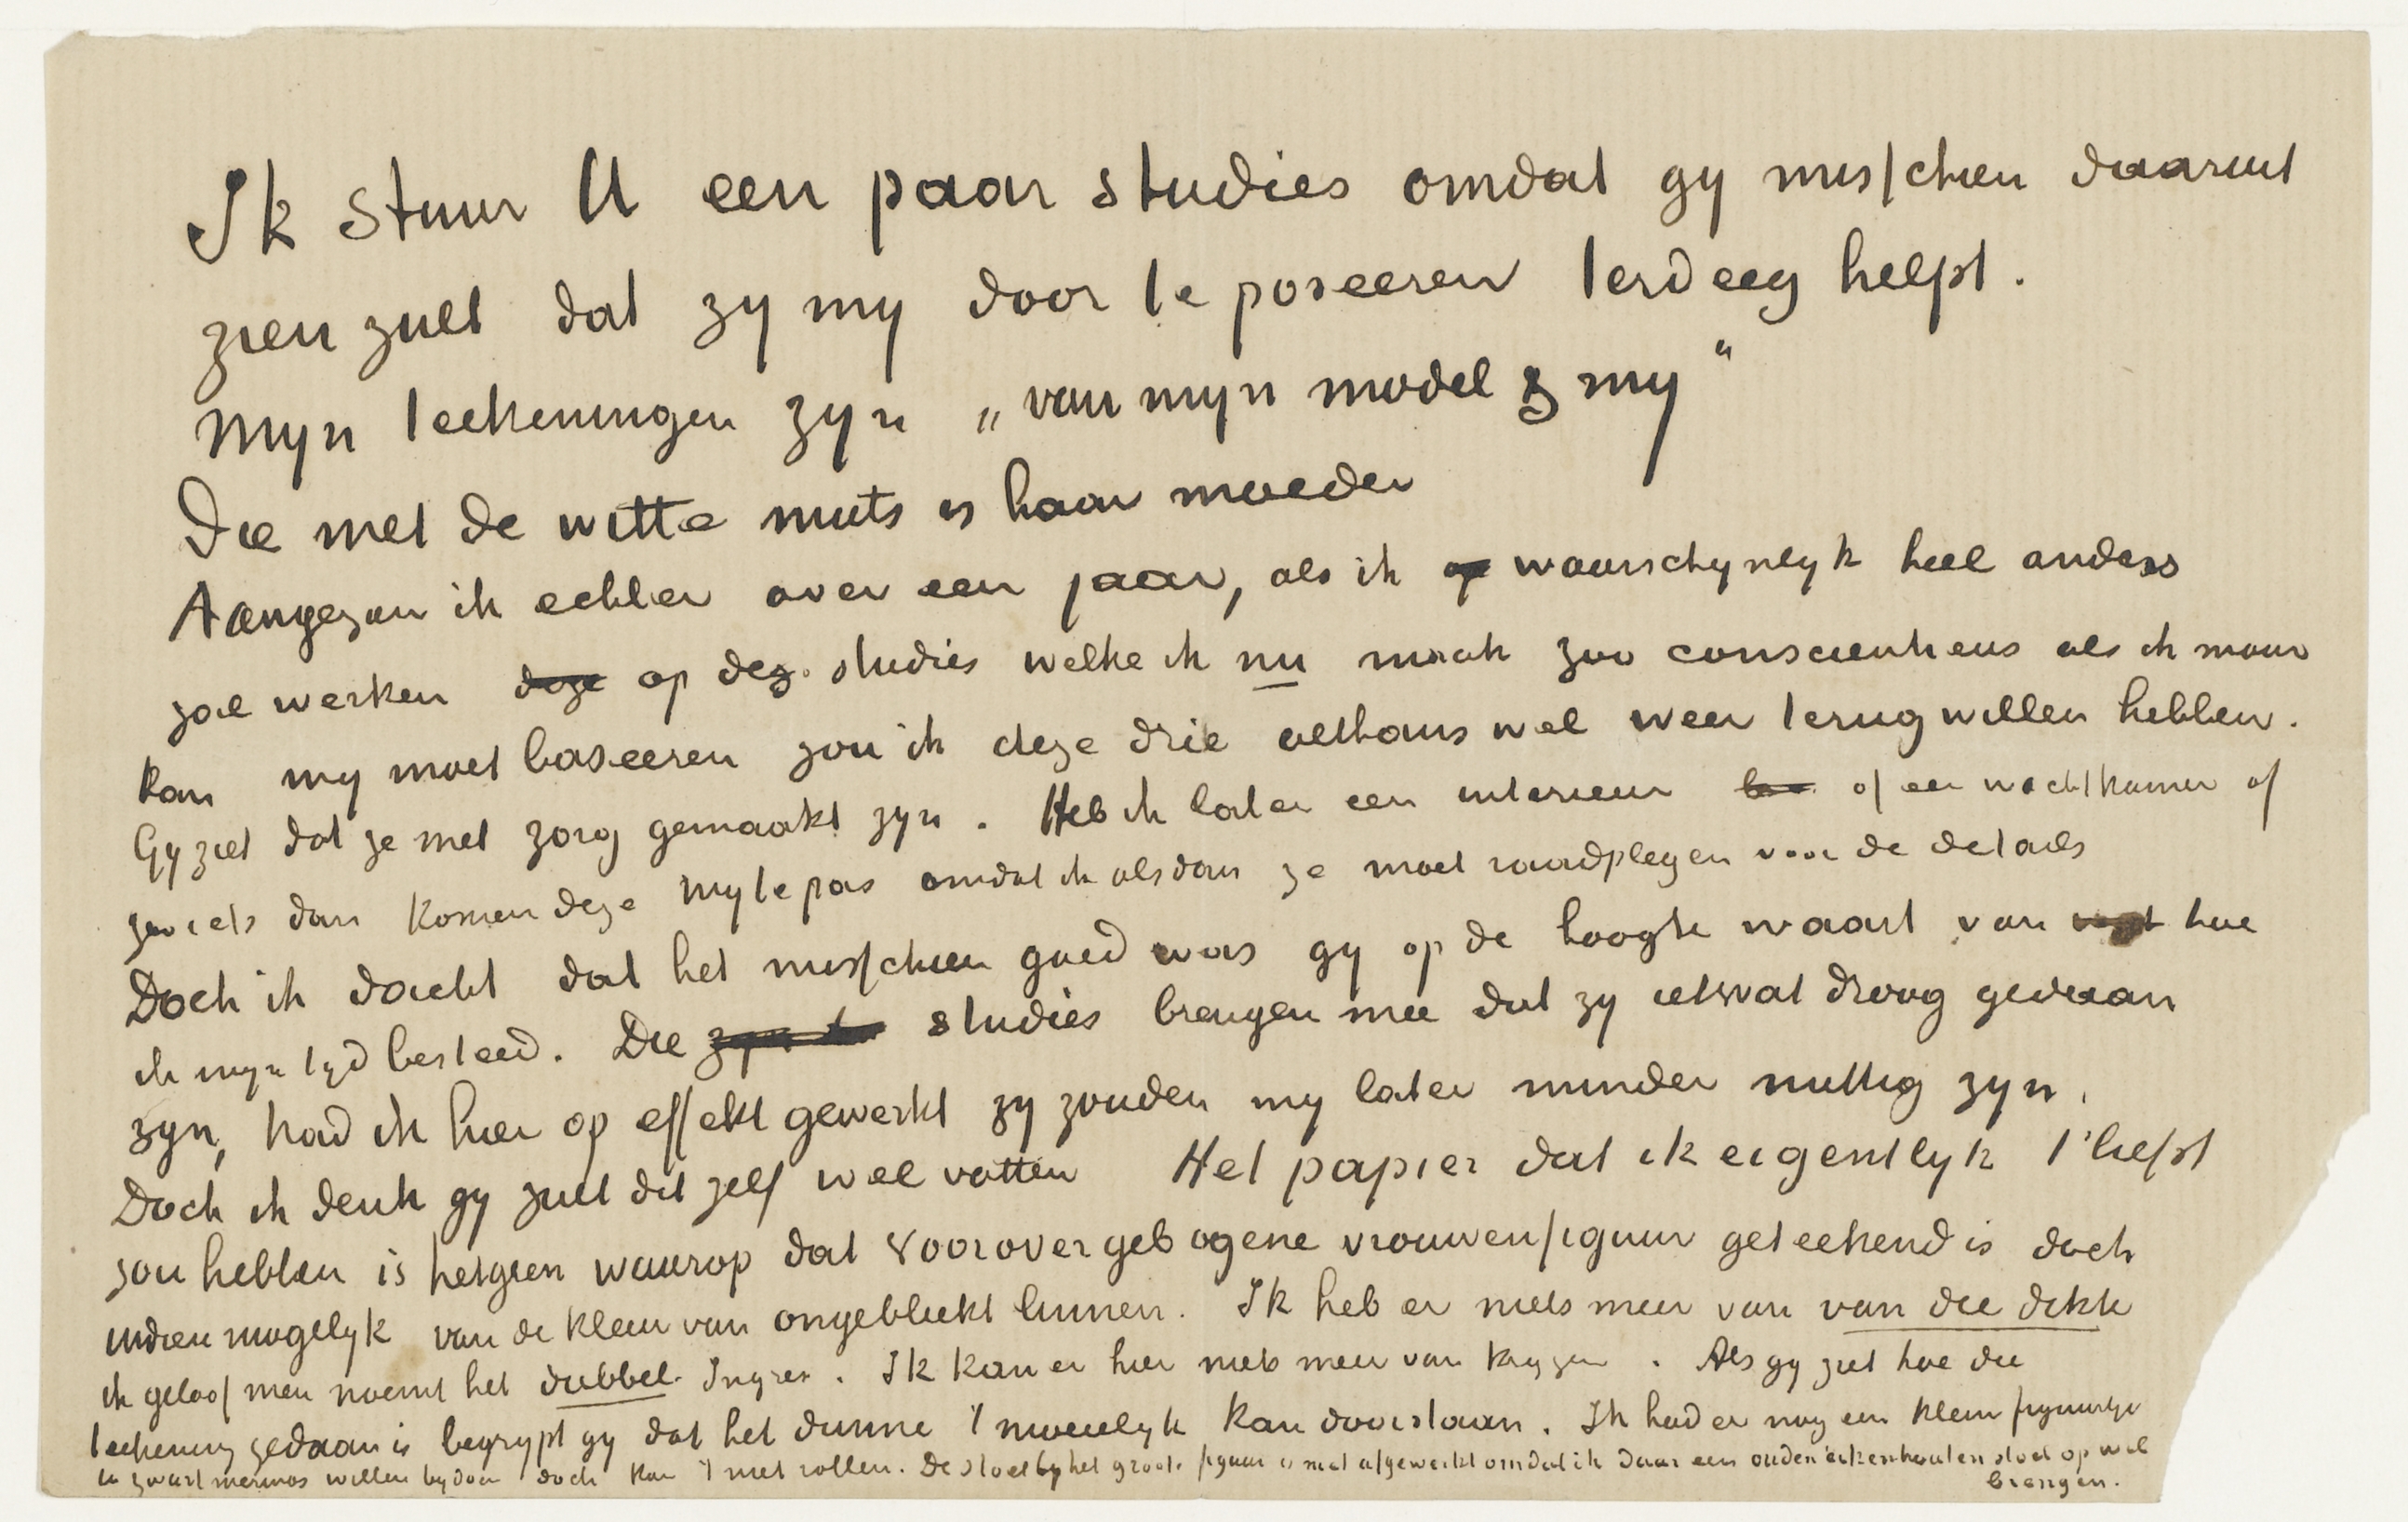 Ik stuur U een paar studies omdat gy misschien daaruit
zien zult dat zy my door te poseeren terdeeg helpt.
Myn teekeningen zyn „van myn model & my“
Die met de witte muts is haar moeder
Aangezien ik echter over een jaar, als ik op waarschynlyk heel anders
zal werken deze op dez. studies welke ik nu maak zoo conscientieus als ik maar
kan my moet baseeren zou ik deze drie althans wel weer terug willen hebben.
Gy ziet dat ze met zorg gemaakt zyn. Heb ik later een interieur of een wachtkamer of
zoo iets dan komen deze my te pas omdat ik alsdan ze moet raadplegen voor de details
Doch ik dacht dat het misschien goed was gy op de hoogte waart van hoe
ik myn tyd besteed. Die studies brengen mee dat zy ietwat droog gedaan
zyn, had ik hier op effekt gewerkt zy zouden my later minder nuttig zyn.
Doch ik denk gy zult dit zelf wel vatten Het papier dat ik eigentlyk 't liefst
zou hebben is hetgeen waarop dat voorovergebogene vrouwenfiguur geteekend is doch
indien mogelyk van de kleur van ongebleekt linnen. Ik heb er niets meer van van die dikte
ik geloof men noemt het dubbel Ingres. Ik kan er hier niets meer van krygen. Als gy ziet hoe die
teekening gedaan is begrypt gy dat het dunne 't moeielyk kan doorstaan. Ik had er nog een klein figuurtje
in zwart merinos willen bydoen doch kan 't niet rollen. De stoel by het groote figuur is niet afgewerkt omdat ik daar een ouden eikenhouten stoel op wil
brengen.